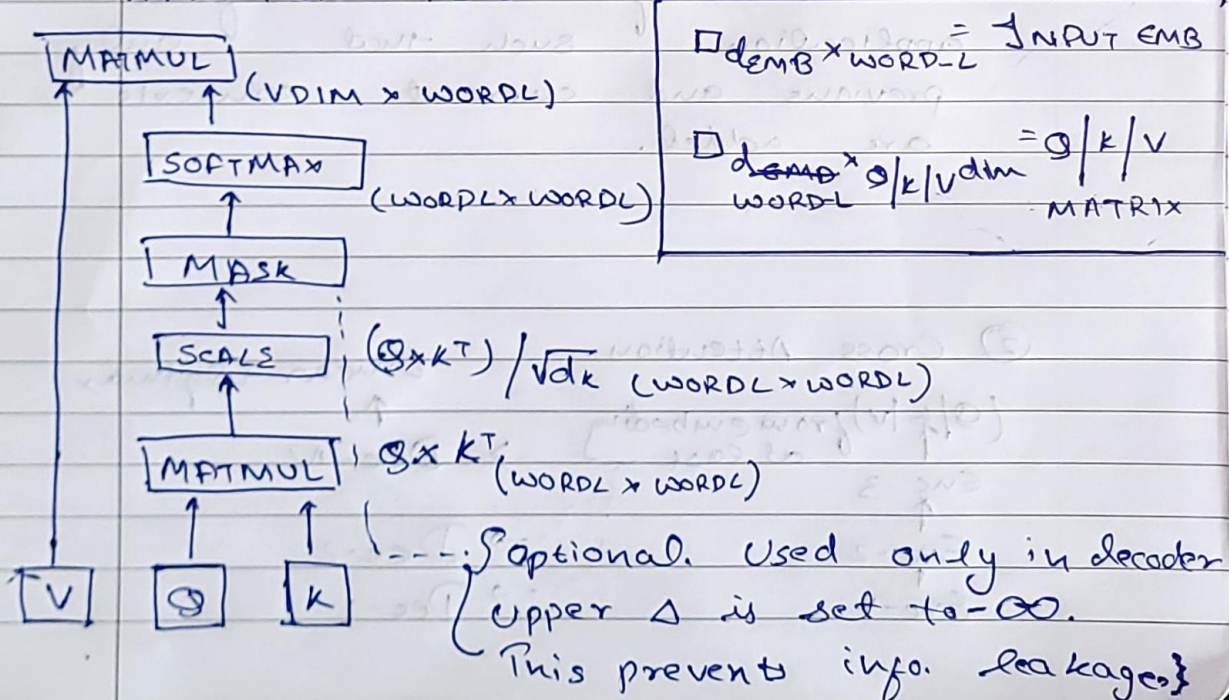 MATMUL
(VDIM x WORDL)
SOFTMAX
(WORDL x WORDL)
MASK
SCALE
(Q x K^T) / √dk (WORDL x WORDL)
MATMUL
Q x K^T
(WORDL x WORDL)
V
Q
K
{Optional. Used only in decoder
upper Δ is set to -∞.
This prevents info. leakage.}
□ dEMB x WORD-L = INPUT EMB
□ dEMB x Q/K/V dim = Q/K/V
WORD-L
MATRIX